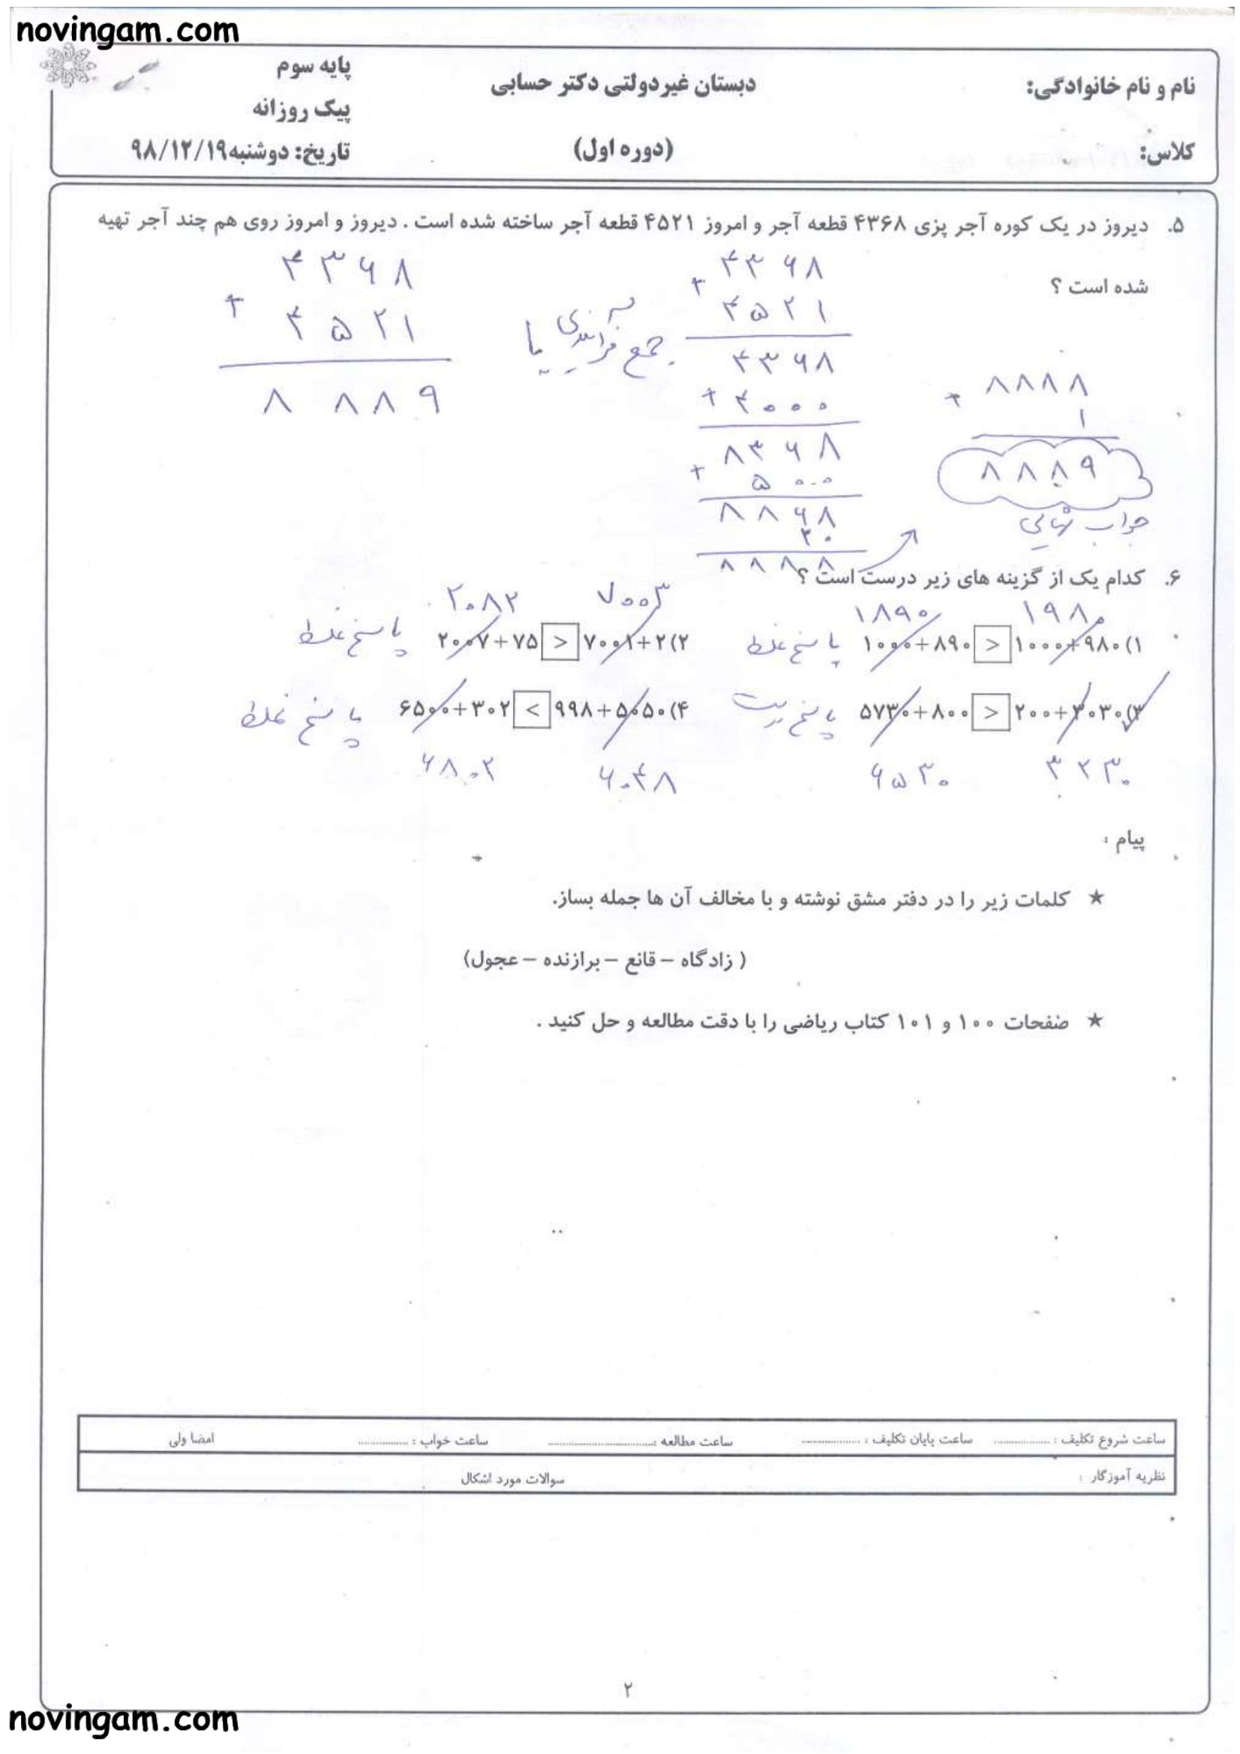 novingam.com
نام و نام خانوادگی:
دبستان غیردولتی دکتر حسابی
پایه سوم
پیک روزانه
کلاس:
(دوره اول)
تاریخ: دوشنبه ۹۸/۱۲/۱۹
۵. دیروز در یک کوره آجر پزی ۴۳۶۸ قطعه آجر و امروز ۴۵۲۱ قطعه آجر ساخته شده است . دیروز و امروز روی هم چند آجر تهیه
شده است ؟
۴۳۶۸
+ ۴۵۲۱
۴۳۶۸
+ ۴۰۰۰
۸۳۶۸
+ ۵۰۰
۸۸۶۸
۲۰
۸۸۸۸
۸۸۸۸
+ ۱
۸۸۸۹
جواب نهایی
جمع فرآیندی یا
۴۳۶۸
+ ۴۵۲۱
۸۸۸۹
۶. کدام یک از گزینه های زیر درست است ؟
۱۹۸۰
۱۸۹۰
۷۰۰۳
۲۰۸۲
۱) ۱۰۰۰+۸۹۰ > ۱۰۰۰+۹۸۰ پاسخ غلط
۲) ۲۰۰۷+۷۵ > ۷۰۰۱+۲ پاسخ غلط
۳) ۵۷۳۰+۸۰۰ > ۲۰۰+۳۰۳۰ پاسخ درست
۴) ۶۵۰۰+۳۰۲ < ۹۹۸+۵۰۵۰ پاسخ غلط
۳۲۳۰
۶۵۳۰
۶۰۴۸
۶۸۰۲
پیام :
★ کلمات زیر را در دفتر مشق نوشته و با مخالف آن ها جمله بساز.
( زادگاه – قانع – برازنده – عجول)
★ صفحات ۱۰۰ و ۱۰۱ کتاب ریاضی را با دقت مطالعه و حل کنید .
ساعت شروع تکلیف : .................. ساعت پایان تکلیف : .................. ساعت مطالعه :.................................. ساعت خواب : ............... امضا ولی
نظریه آموزگار : سوالات مورد اشکال
۲
novingam.com